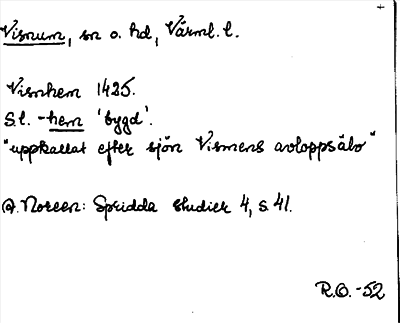 Visnum, sn o. hd, Värml. l.
Visnhem 1425.
S.l. -hem 'bygd'.
"uppkallat efter sjön Vismens avloppsälv"
A. Noreen: Spridda studier 4, s 41.
R.O. -52